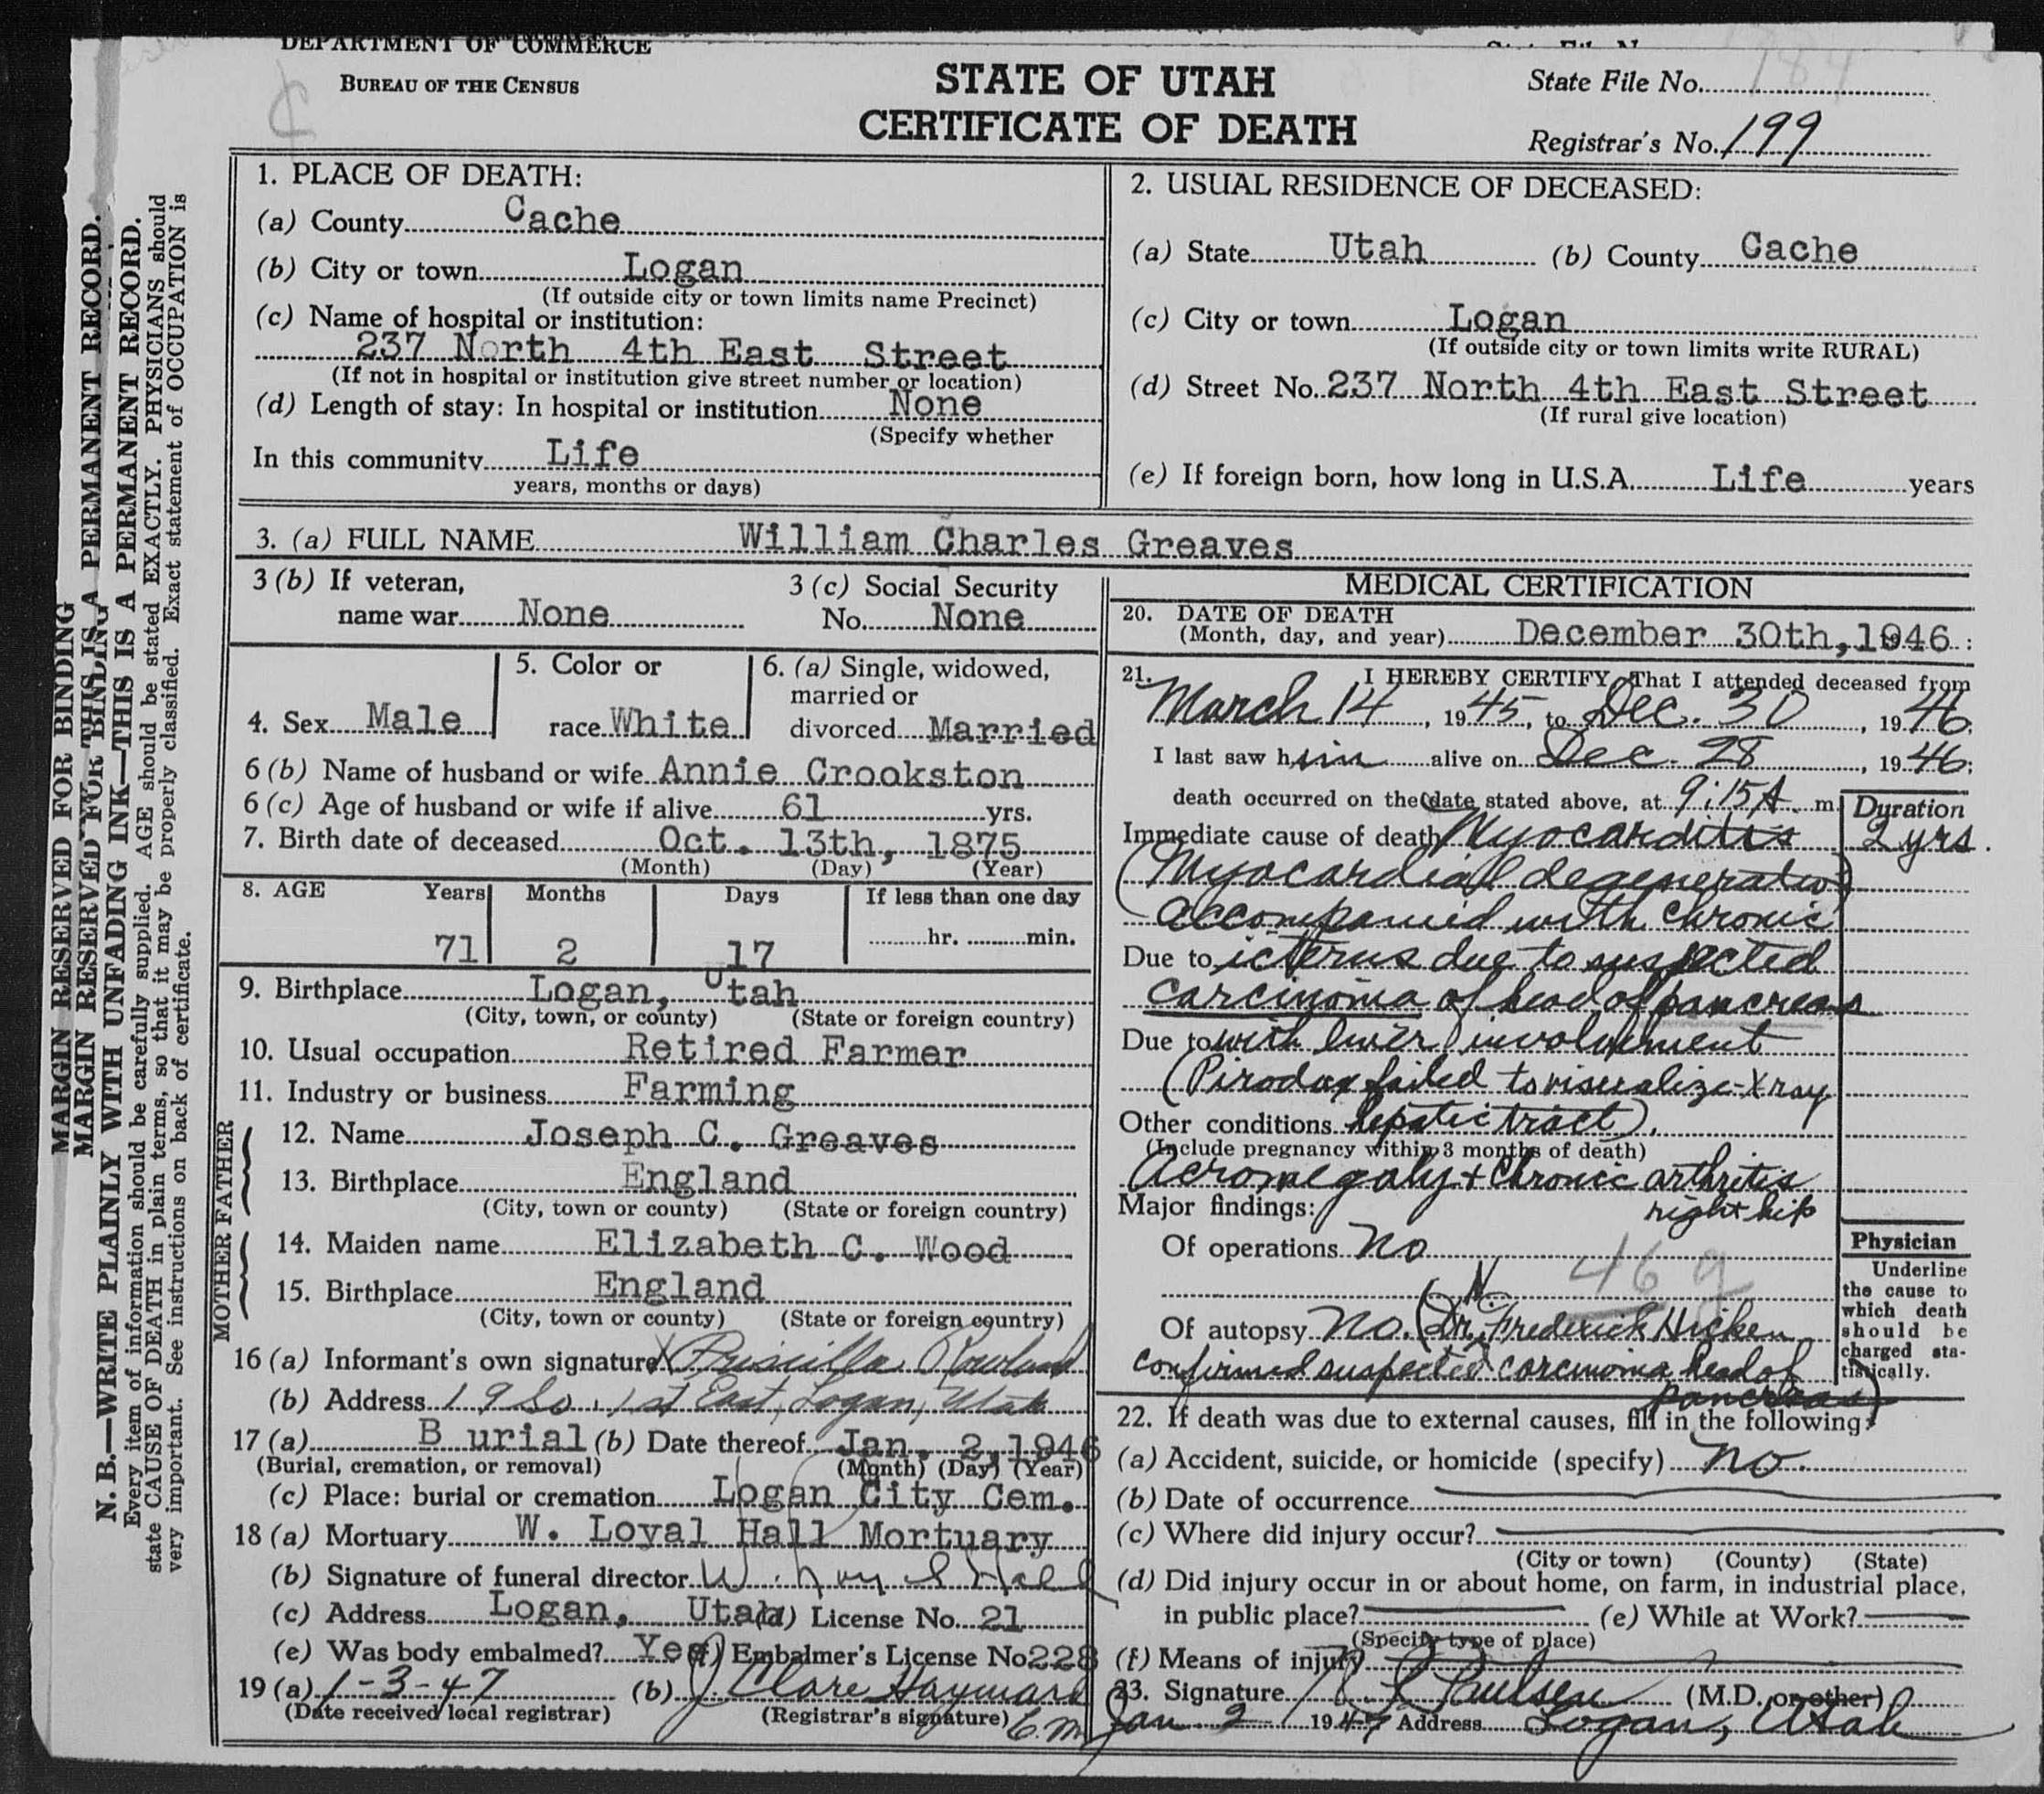 DEPARTMENT OF COMMERCE
BUREAU OF THE CENSUS
STATE OF UTAH
CERTIFICATE OF DEATH
State File No. 184
Registrar's No. 199
MARGIN RESERVED FOR BINDING
MARGIN RESERVED FOR BINDING
THIS IS A PERMANENT RECORD.
N. B.—WRITE PLAINLY WITH UNFADING INK—THIS IS A PERMANENT RECORD.
Every item of information should be carefully supplied. AGE should be stated EXACTLY. PHYSICIANS should
state CAUSE OF DEATH in plain terms, so that it may be properly classified. Exact statement of OCCUPATION is
very important. See instructions on back of certificate.
1. PLACE OF DEATH:
(a) County Cache
(b) City or town Logan
(If outside city or town limits name Precinct)
(c) Name of hospital or institution:
237 North 4th East Street
(If not in hospital or institution give street number or location)
(d) Length of stay: In hospital or institution None
(Specify whether
In this community Life
years, months or days)
2. USUAL RESIDENCE OF DECEASED:
(a) State Utah (b) County Cache
(c) City or town Logan
(If outside city or town limits write RURAL)
(d) Street No. 237 North 4th East Street
(If rural give location)
(e) If foreign born, how long in U.S.A. Life years
3. (a) FULL NAME William Charles Greaves
3 (b) If veteran,
name war None
3 (c) Social Security
No. None
4. Sex Male
5. Color or
race White
6. (a) Single, widowed,
married or
divorced Married
6 (b) Name of husband or wife Annie Crookston
6 (c) Age of husband or wife if alive 61 yrs.
7. Birth date of deceased Oct. 13th, 1875
(Month) (Day) (Year)
8. AGE Years Months Days If less than one day
71 2 17 hr. min.
9. Birthplace Logan, Utah
(City, town, or county) (State or foreign country)
10. Usual occupation Retired Farmer
11. Industry or business Farming
FATHER
12. Name Joseph C. Greaves
13. Birthplace England
(City, town or county) (State or foreign country)
MOTHER
14. Maiden name Elizabeth C. Wood
15. Birthplace England
(City, town or county) (State or foreign country)
16 (a) Informant's own signature X Priscilla Rowland
(b) Address 19 So. 1st East, Logan, Utah
17 (a) B urial (b) Date thereof Jan. 2, 1946
(Burial, cremation, or removal) (Month) (Day) (Year)
(c) Place: burial or cremation Logan City Cem.
18 (a) Mortuary W. Loyal Hall Mortuary
(b) Signature of funeral director W. Loyal Hall
(c) Address Logan, Utah (d) License No. 21
(e) Was body embalmed? Yes (f) Embalmer's License No 228
19 (a) 1-3-47 (b) J Clare Hayward
(Date received local registrar) (Registrar's signature) E.m.
MEDICAL CERTIFICATION
20. DATE OF DEATH
(Month, day, and year) December 30th, 1946
21. I HEREBY CERTIFY, That I attended deceased from
March 14, 1945, to Dec. 30, 1946;
I last saw him alive on Dec. 28, 1946;
death occurred on the date stated above, at 9:15 A. m.
Duration
Immediate cause of death Myocarditis 2 yrs.
(Myocardial degeneration)
accompanied with chronic
Due to icterus due to suspected
carcinoma of head of pancreas
Due to with liver involvement
(Pirodax failed to visualize X ray
Other conditions hepatic tract).
(Include pregnancy within 3 months of death)
Acromegaly + Chronic arthritis
right hip
Major findings:
Of operations no
46 g
Of autopsy no. (Dr. N. Frederick Hicken
confirmed suspected carcinoma head of
pancreas)
Physician
Underline
the cause to
which death
should be
charged sta-
tistically.
22. If death was due to external causes, fill in the following:
(a) Accident, suicide, or homicide (specify) no.
(b) Date of occurrence
(c) Where did injury occur?
(City or town) (County) (State)
(d) Did injury occur in or about home, on farm, in industrial place,
in public place? (e) While at Work?
(Specify type of place)
(f) Means of injury
23. Signature Paulsen (M.D. or other)
Jan 2 1947 Address Logan, Utah